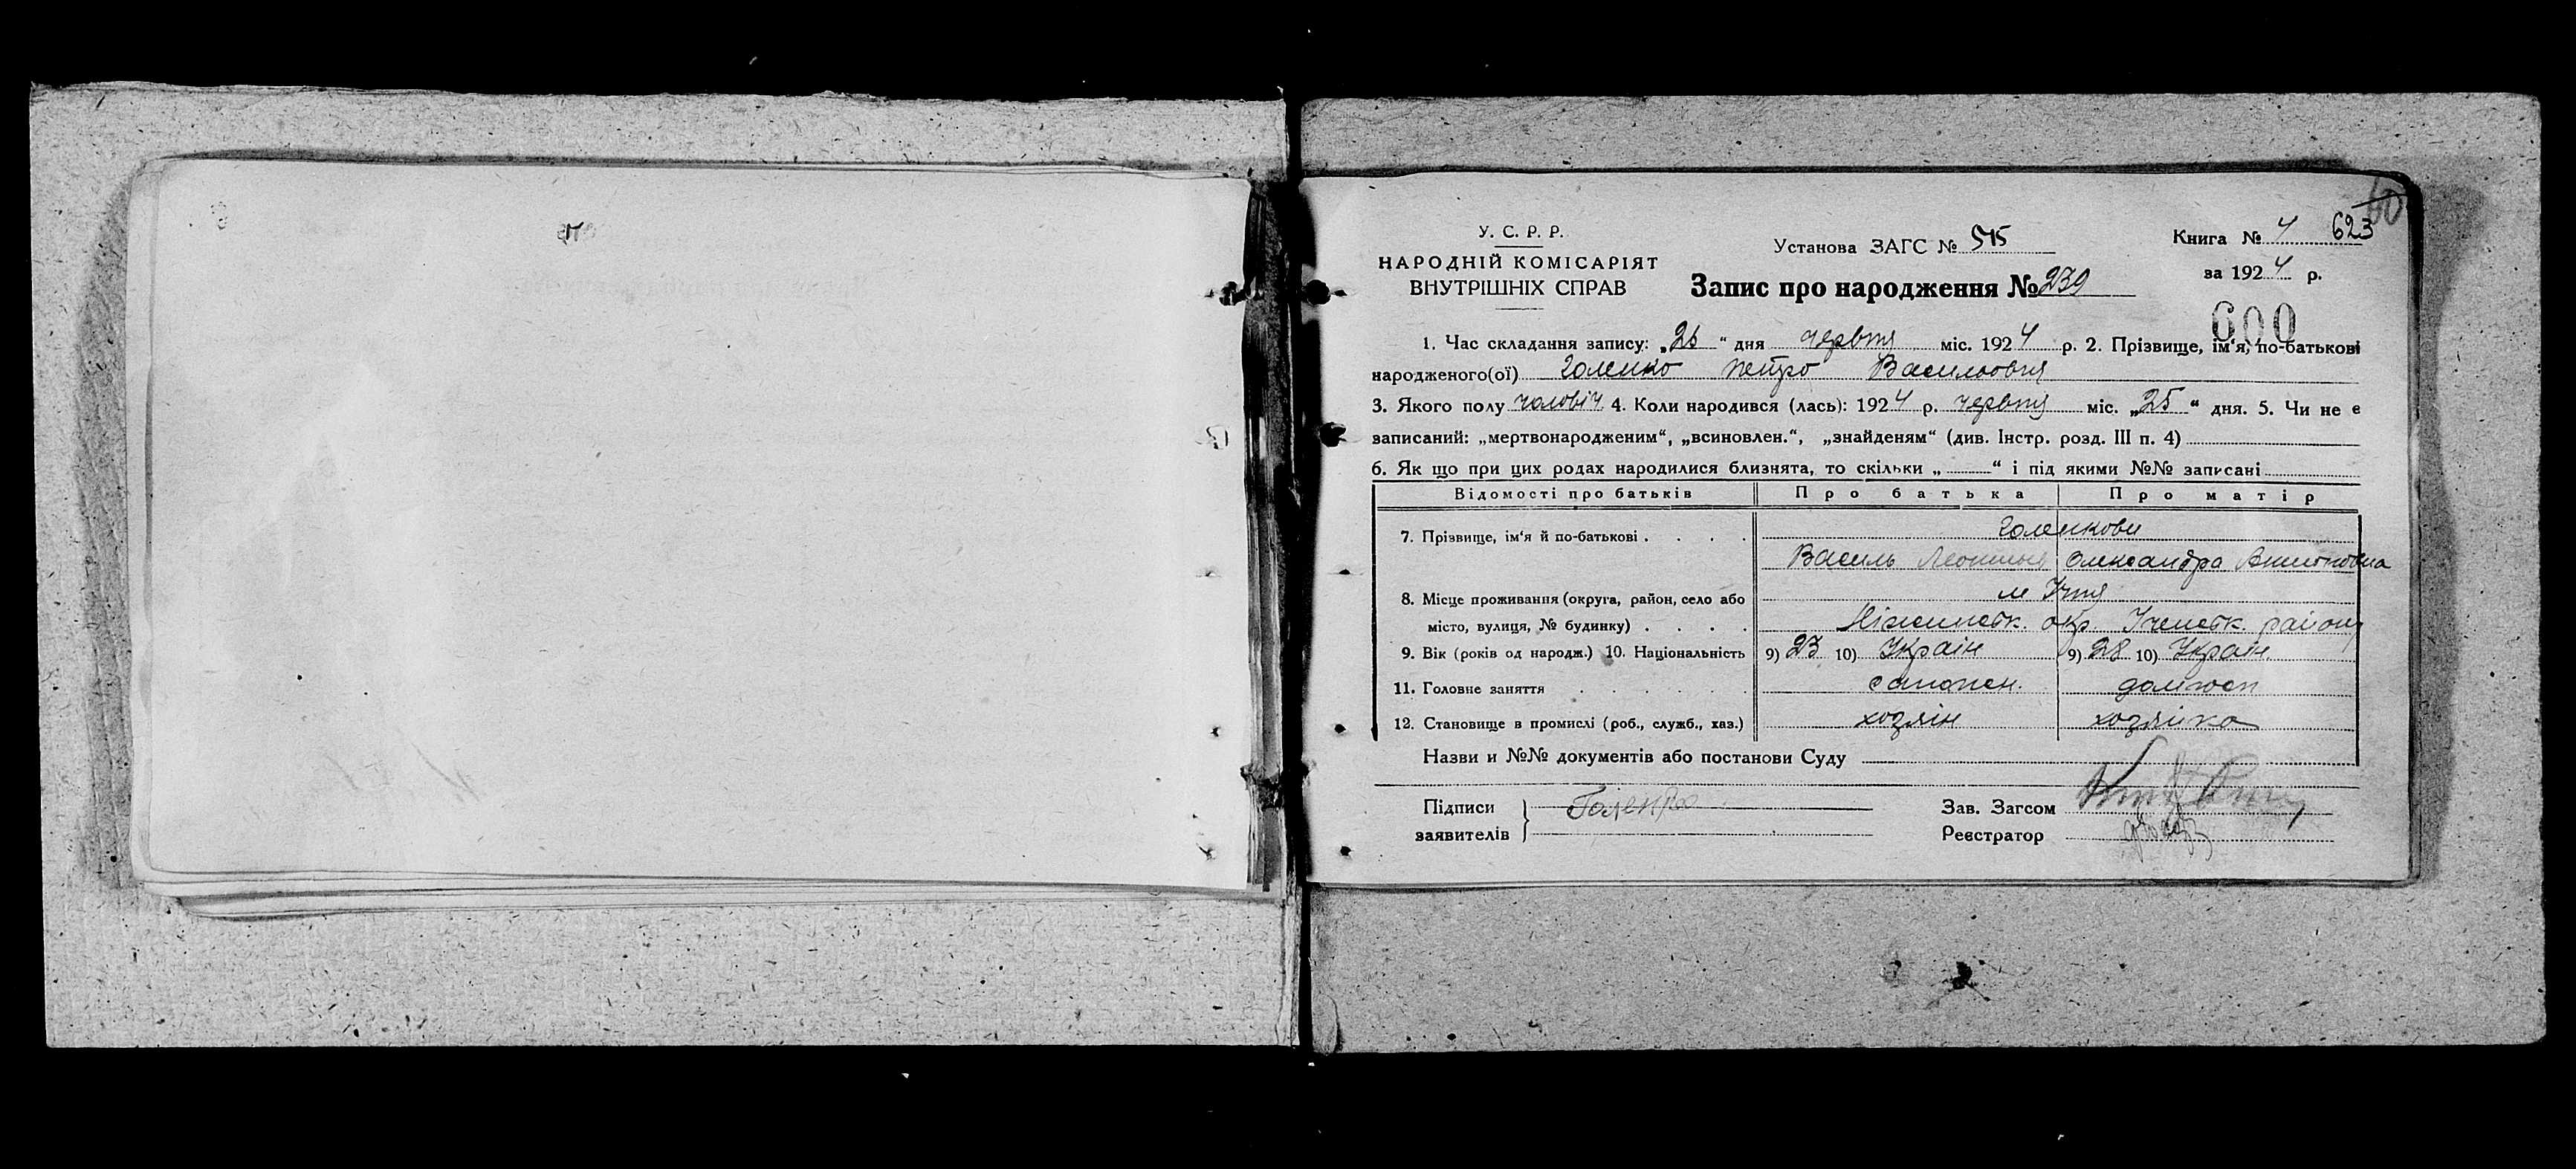 У. С. Р. Р.
НАРОДНІЙ КОМІСАРІЯТ
ВНУТРІШНІХ СПРАВ
Установа ЗАГС № 515
Запис про народження № 239
Книга № 4 623
за 1924 р.
600
1. Час складання запису: „26“ дня червня міс. 1924 р. 2. Прізвище, ім‘я, по-батькові
народженого(ої) Голенко Петро Васильович
3. Якого полу чоловіч 4. Коли народився (лась): 1924 р. червня міс. „25“ дня. 5. Чи не е
записаний: „мертвонародженим“, „всиновлен.“, „знайденям“ (див. Інстр. розд. III п. 4)
6. Як що при цих родах народилися близнята, то скільки „ “ і під якими №№ записані
Відомості про батьків Про батька Про матір
7. Прізвище, ім‘я й по-батькові . . . . Голенкови
Василь Олександра Антоновна
8. Місце проживання (округа, район, село або м Ічня
місто, вулиця, № будинку) . . . . Ніжинськ. окр. Іченськ. району
9. Вік (років од народж.) 10. Національність 9) 23 10) Україн 9) 28 10) Україн.
11. Головне заняття . . . . . . домгосп
12. Становище в промислі (роб., служб., хаз.) хозяін хозяйка
Назви и №№ документів або постанови Суду
Підписи Голенко Зав. Загсом
заявителів Реєстратор